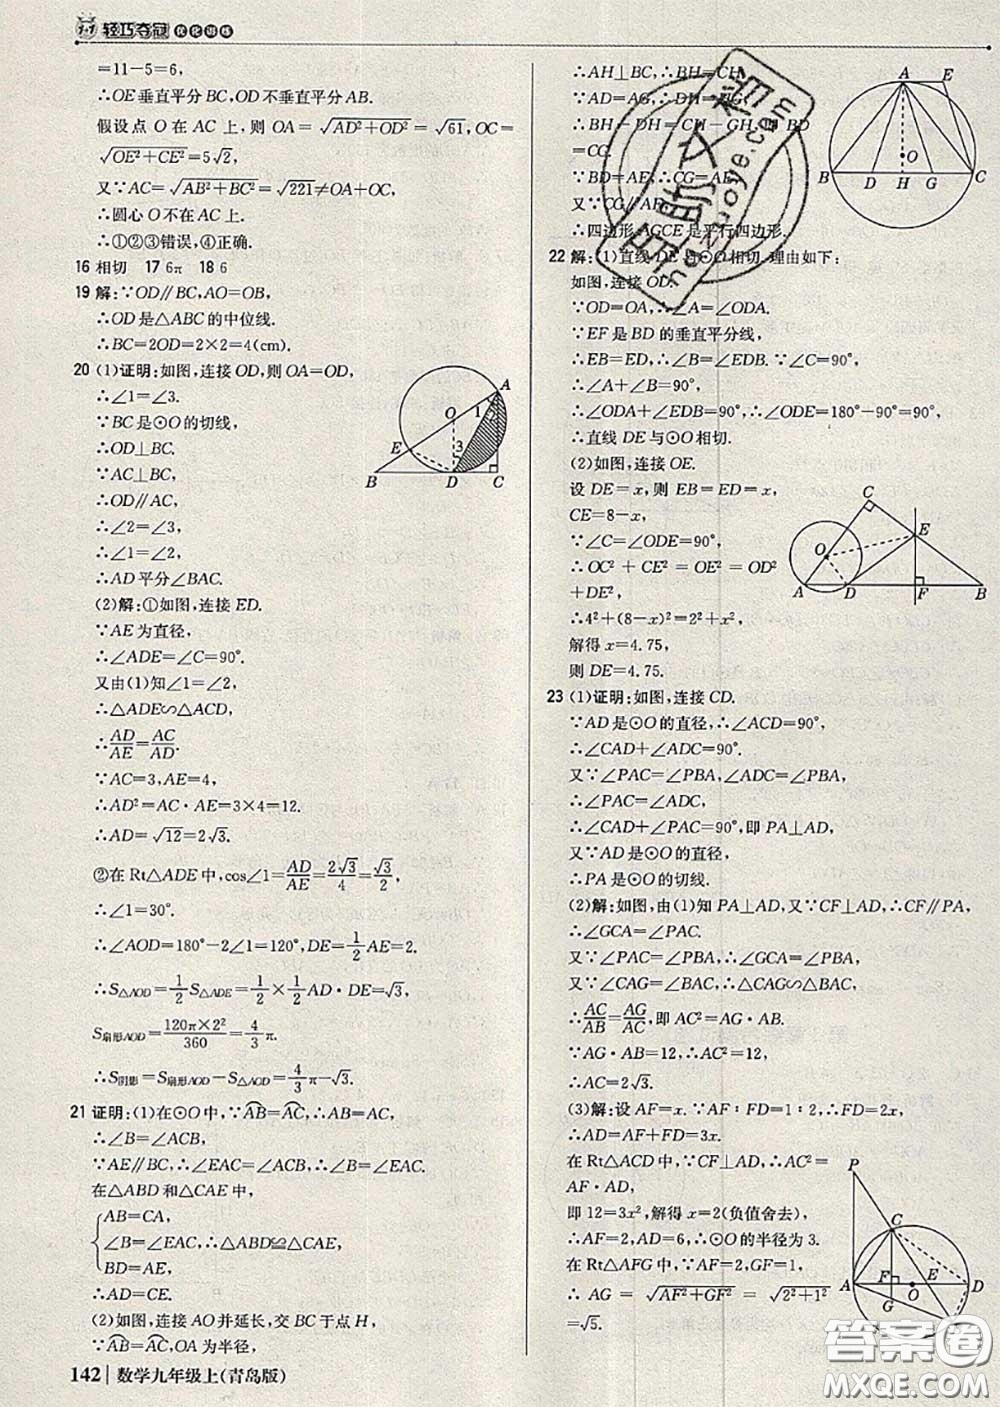 1+1 轻巧夺冠 优化训练
=11-5=6,
∴OE垂直平分BC,OD不垂直平分AB.
假设点O在AC上,则OA=√(AD²+OD²)=√61,OC=
√(OE²+CE²)=5√2,
又∵AC=√(AB²+BC²)=√221≠OA+OC,
∴圆心O不在AC上.
∴①②③错误,④正确.
16 相切 17 6π 18 6
19 解:∵OD∥BC,AO=OB,
∴OD是△ABC的中位线.
∴BC=2OD=2×2=4(cm).
20 (1)证明:如图,连接OD,则OA=OD,
∴∠1=∠3.
∵BC是⊙O的切线,
∴OD⊥BC.
∵AC⊥BC,
∴OD∥AC,
∴∠2=∠3,
∴∠1=∠2,
∴AD平分∠BAC.
(2)解:①如图,连接ED.
∵AE为直径,
∴∠ADE=∠C=90°.
又由(1)知∠1=∠2,
∴△ADE∽△ACD,
∴AD/AE=AC/AD.
∵AC=3,AE=4,
∴AD²=AC·AE=3×4=12.
∴AD=√12=2√3.
②在Rt△ADE中,cos∠1=AD/AE=2√3/4=√3/2,
∴∠1=30°.
∴∠AOD=180°-2∠1=120°,DE=1/2AE=2.
∴S△AOD=1/2S△ADE=1/2×1/2AD·DE=√3,
S扇形AOD=120π×2²/360=4/3π.
∴S阴影=S扇形AOD-S△AOD=4/3π-√3.
21 证明:(1)在⊙O中,∵AB=AC,∴AB=AC,
∴∠B=∠ACB,
∵AE∥BC,∴∠EAC=∠ACB,∴∠B=∠EAC,
在△ABD和△CAE中,
AB=CA,
∠B=∠EAC,∴△ABD≌△CAE,
BD=AE,
∴AD=CE.
(2)如图,连接AO并延长,交BC于点H,
∵AB=AC,OA为半径,
142 数学九年级上(青岛版)
∴AH⊥BC,∴BH=CH.
∵AD=AG,∴DH=HG,
∴BH-DH=CH-GH,即BD
=CG.
∵BD=AE,∴CG=AE.
又∵CG∥AE,
∴四边形AGCE是平行四边形.
22 解:(1)直线DE与⊙O相切.理由如下:
如图,连接OD.
∵OD=OA,∴∠A=∠ODA.
∵EF是BD的垂直平分线,
∴EB=ED,∴∠B=∠EDB. ∵∠C=90°,
∴∠A+∠B=90°,
∴∠ODA+∠EDB=90°,∴∠ODE=180°-90°=90°,
∴直线DE与⊙O相切.
(2)如图,连接OE.
设DE=x,则EB=ED=x,
CE=8-x,
∵∠C=∠ODE=90°,
∴OC²+CE²=OE²=OD²
+DE²,
∴4²+(8-x)²=2²+x²,
解得x=4.75,
则DE=4.75.
23 (1)证明:如图,连接CD.
∵AD是⊙O的直径,∴∠ACD=90°,
∴∠CAD+∠ADC=90°.
又∵∠PAC=∠PBA,∠ADC=∠PBA,
∴∠PAC=∠ADC,
∴∠CAD+∠PAC=90°,即PA⊥AD,
又∵AD是⊙O的直径,
∴PA是⊙O的切线.
(2)解:如图,由(1)知PA⊥AD,又∵CF⊥AD,∴CF∥PA,
∴∠GCA=∠PAC.
又∵∠PAC=∠PBA,∴∠GCA=∠PBA,
又∵∠CAG=∠BAC,∴△CAG∽△BAC,
∴AC/AB=AG/AC,即AC²=AG·AB.
∵AG·AB=12,∴AC²=12,
∴AC=2√3.
(3)解:设AF=x.∵AF:FD=1:2,∴FD=2x,
∴AD=AF+FD=3x.
在Rt△ACD中,∵CF⊥AD,∴AC²=
AF·AD,
即12=3x²,解得x=2(负值舍去),
∴AF=2,AD=6,∴⊙O的半径为3.
在Rt△AFG中,∵AF=2,GF=1,
∴AG=√(AF²+GF²)=√(2²+1²)
=√5.
A
O
1
2
E
3
B
D
C
A
E
O
B
D
H
G
C
C
E
O
A
D
F
B
P
C
F
E
A
O
D
G
互助文档
hezuoye.com
答案卷
MXQE.COM